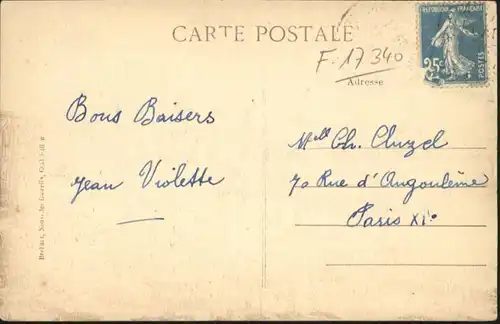 CARTE POSTALE
REPUBLIQUE FRANÇAISE
25c
POSTES
F. 17340
Adresse
Bons Baisers
Jean Violette
Mell Ch. Cluzel
70 Rue d'Angoulême
Paris XIe